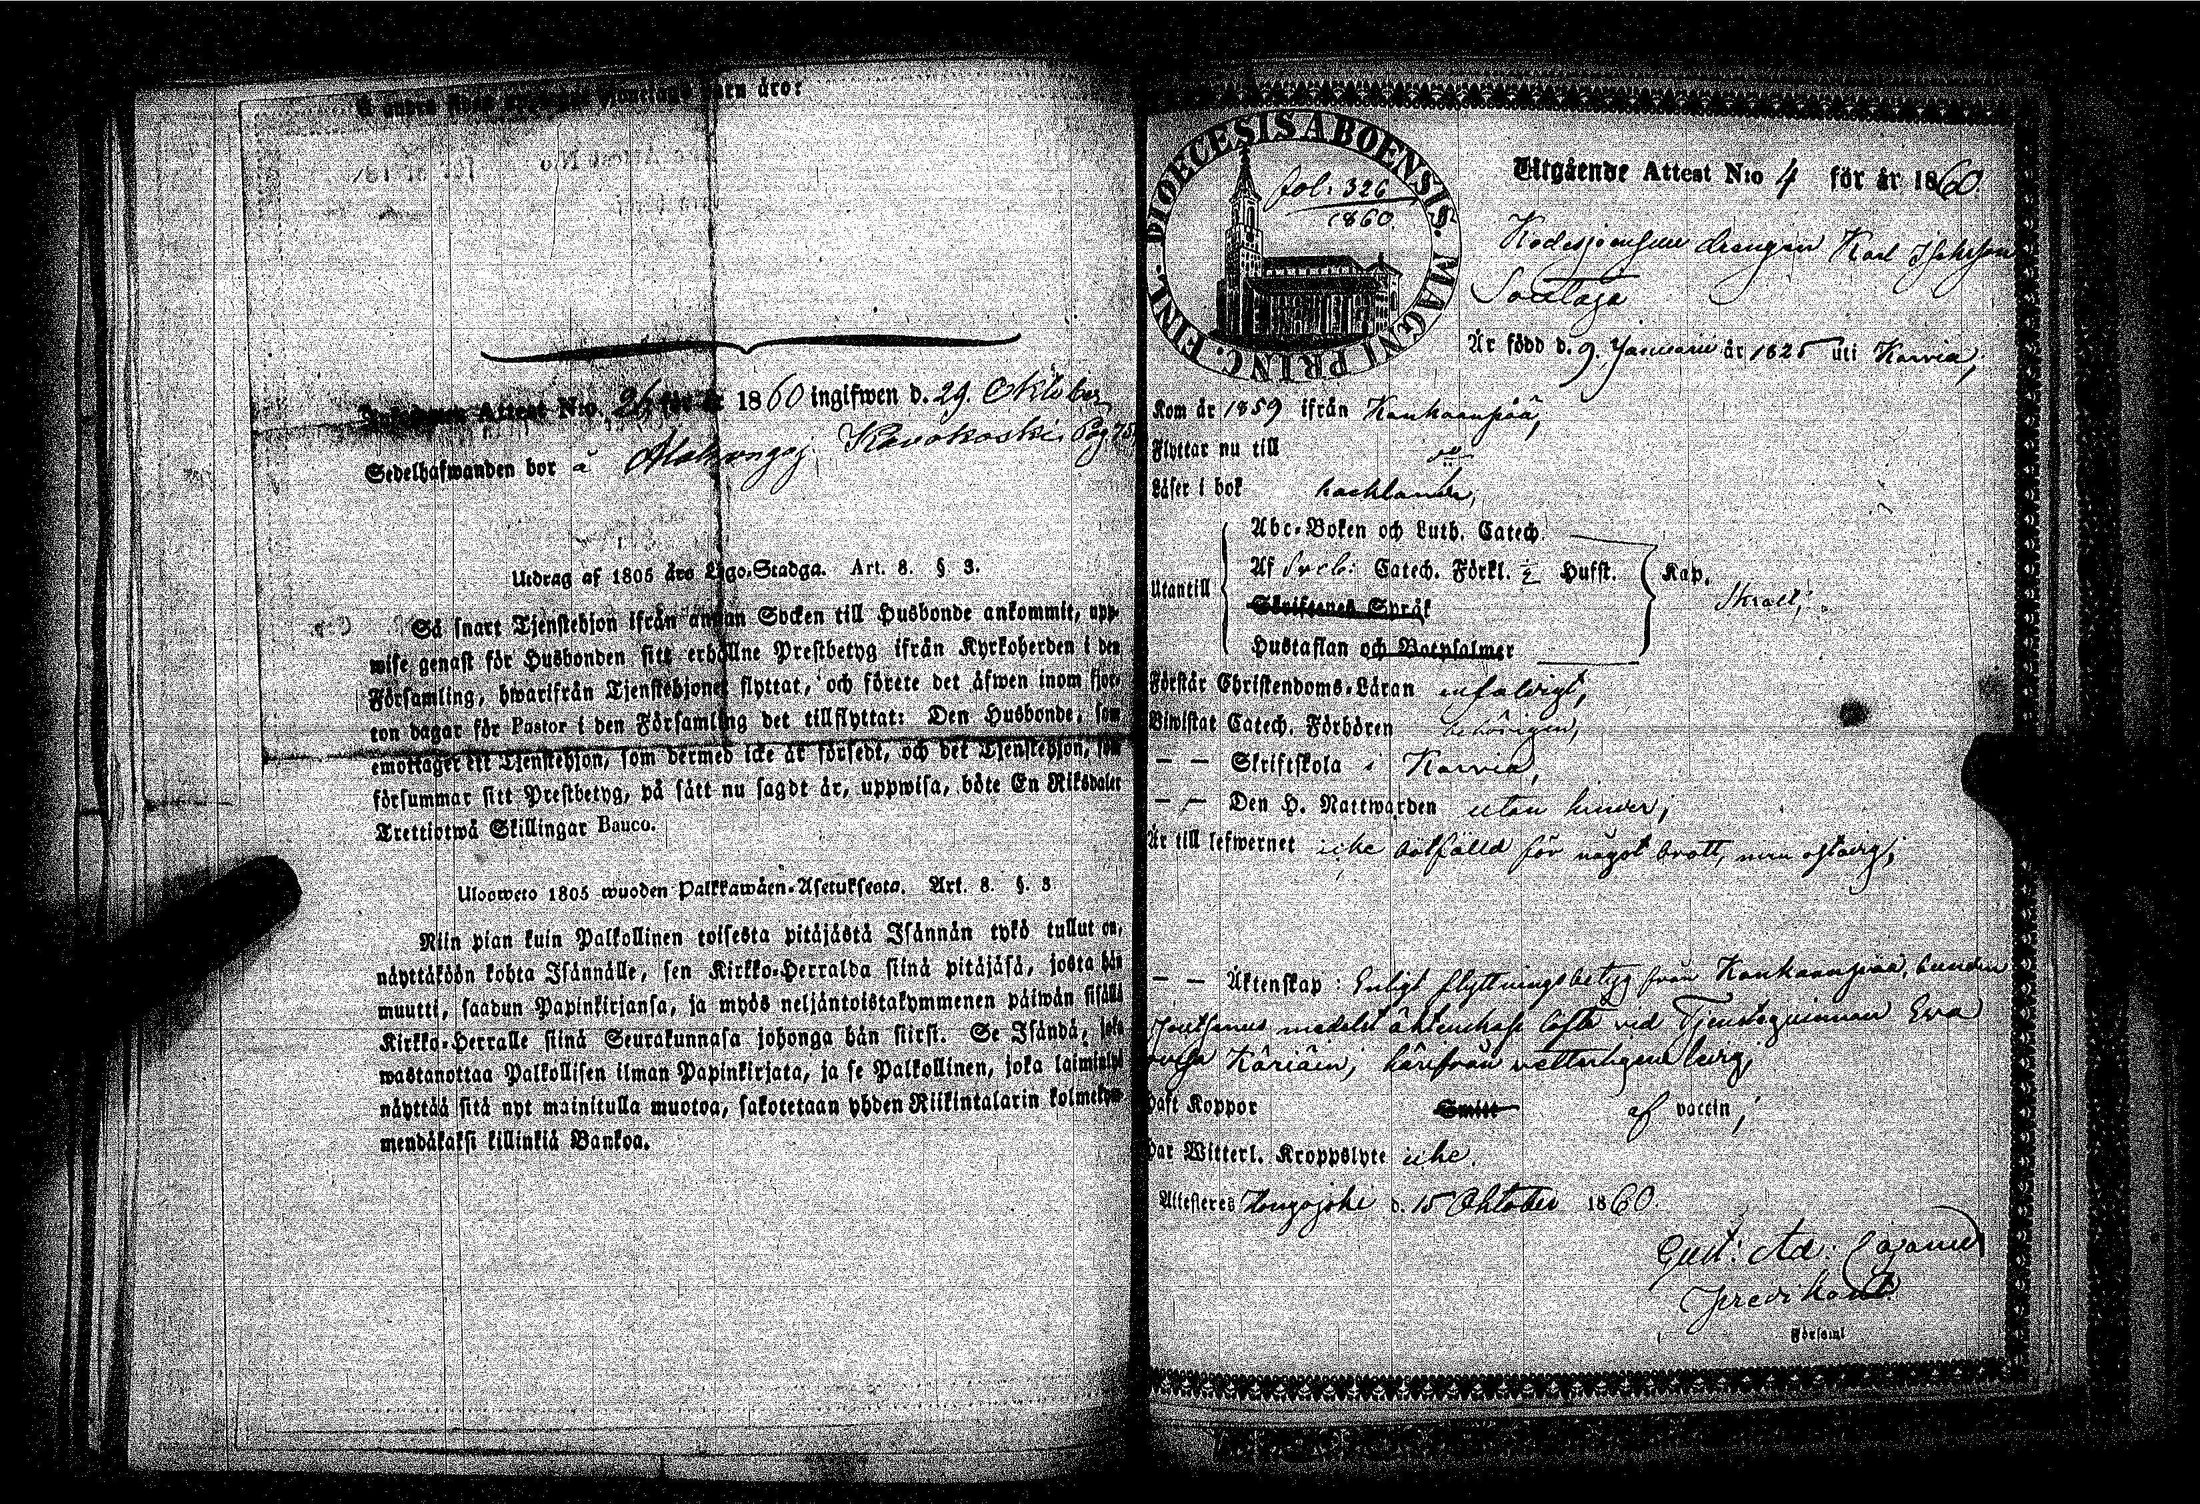 äro:
Attest N:o 26 för år 1860 ingifwen d. 29. Oktober
Sedelhafwanden bor å Alahongoj. Kovakoski. Pag. 75
Utdrag af 1805 års Lego-Stadga. Art. 8. § 3.
Så snart Tjenstehjon ifrån annan Socken till Husbonde ankommit, upp-
wise genast för Husbonden sitt erhållne Prestbetyg ifrån Kyrkoherden i den
Församling, hwarifrån Tjenstehjonet flyttat, och förete det äfwen inom fjor-
ton dagar för Pastor i den Församling det tillflyttat: Den Husbonde, som
emottager ett Tjenstehjon, som dermed icke är försedt, och det Tjenstehjon, som
försummar sitt Prestbetyg, på sätt nu sagdt är, uppwisa, böte En Riksdaler
Trettiotwå Skillingar Banco.
Ulosweto 1805 wuoden Palkkawäen-Asetuksesta. Art. 8. §. 3
Niin pian kuin Palkollinen toisesta pitäjästä Isännän tykö tullut on,
näyttäköön kohta Isännälle, sen Kirkko-Herralda siinä pitäjäsä, josta hän
muutti, saadun Papinkirjansa, ja myös neljäntoistakymmenen päiwän sisällä
Kirkko-Herralle siinä Seurakunnasa johonga hän siirsi. Se Isändä, joka
wastanottaa Palkollisen ilman Papinkirjata, ja se Palkollinen, joka laiminlyö
näyttää sitä nyt mainitulla muotoa, sakotetaan yhden Riikintalarin kolmekym-
mendäkaksi killinkiä Bankoa.
DIOECESIS ABOENSIS. MAGNI PRINC. FINL.
fol: 326
1860.
Utgående Attest N:o 4 för år 1860.
drengen Karl
Är född d. 9. Januarii år 1825 uti Karvia,
Kom år 1859 ifrån Kankaanpää,
Flyttar nu till do
Läser i bok
Utantill
Abc-Boken och Luth. Catech.
Af Sveb: Catech. Förkl. Hufst. Kap.
Skriftenes Språk
Hustaflan och Botpsalmer
Förstår Christendoms-Läran enfaldigt,
Biwistat Catech. Förhören behörigen,
— — Skriftskola i Karvia,
— — Den H. Nattwarden utan hinder,
Är till lefwernet icke sakfälld för något brott, men ostadig,
— — Äktenskap: Enligt flyttningsbetyg från Kankaanpää, bunden
medelst äktenskaps löfte vid Tjenstequinnan Eva
härifrån vetterligen ledig,
Haft Koppor Smitt af vaccin,
Har Witterl. Kroppslyte icke.
Attesteras Hongojoki d. 15 Oktober 1860.
Gust: Ad: Cajanus
Predikant.
Församl